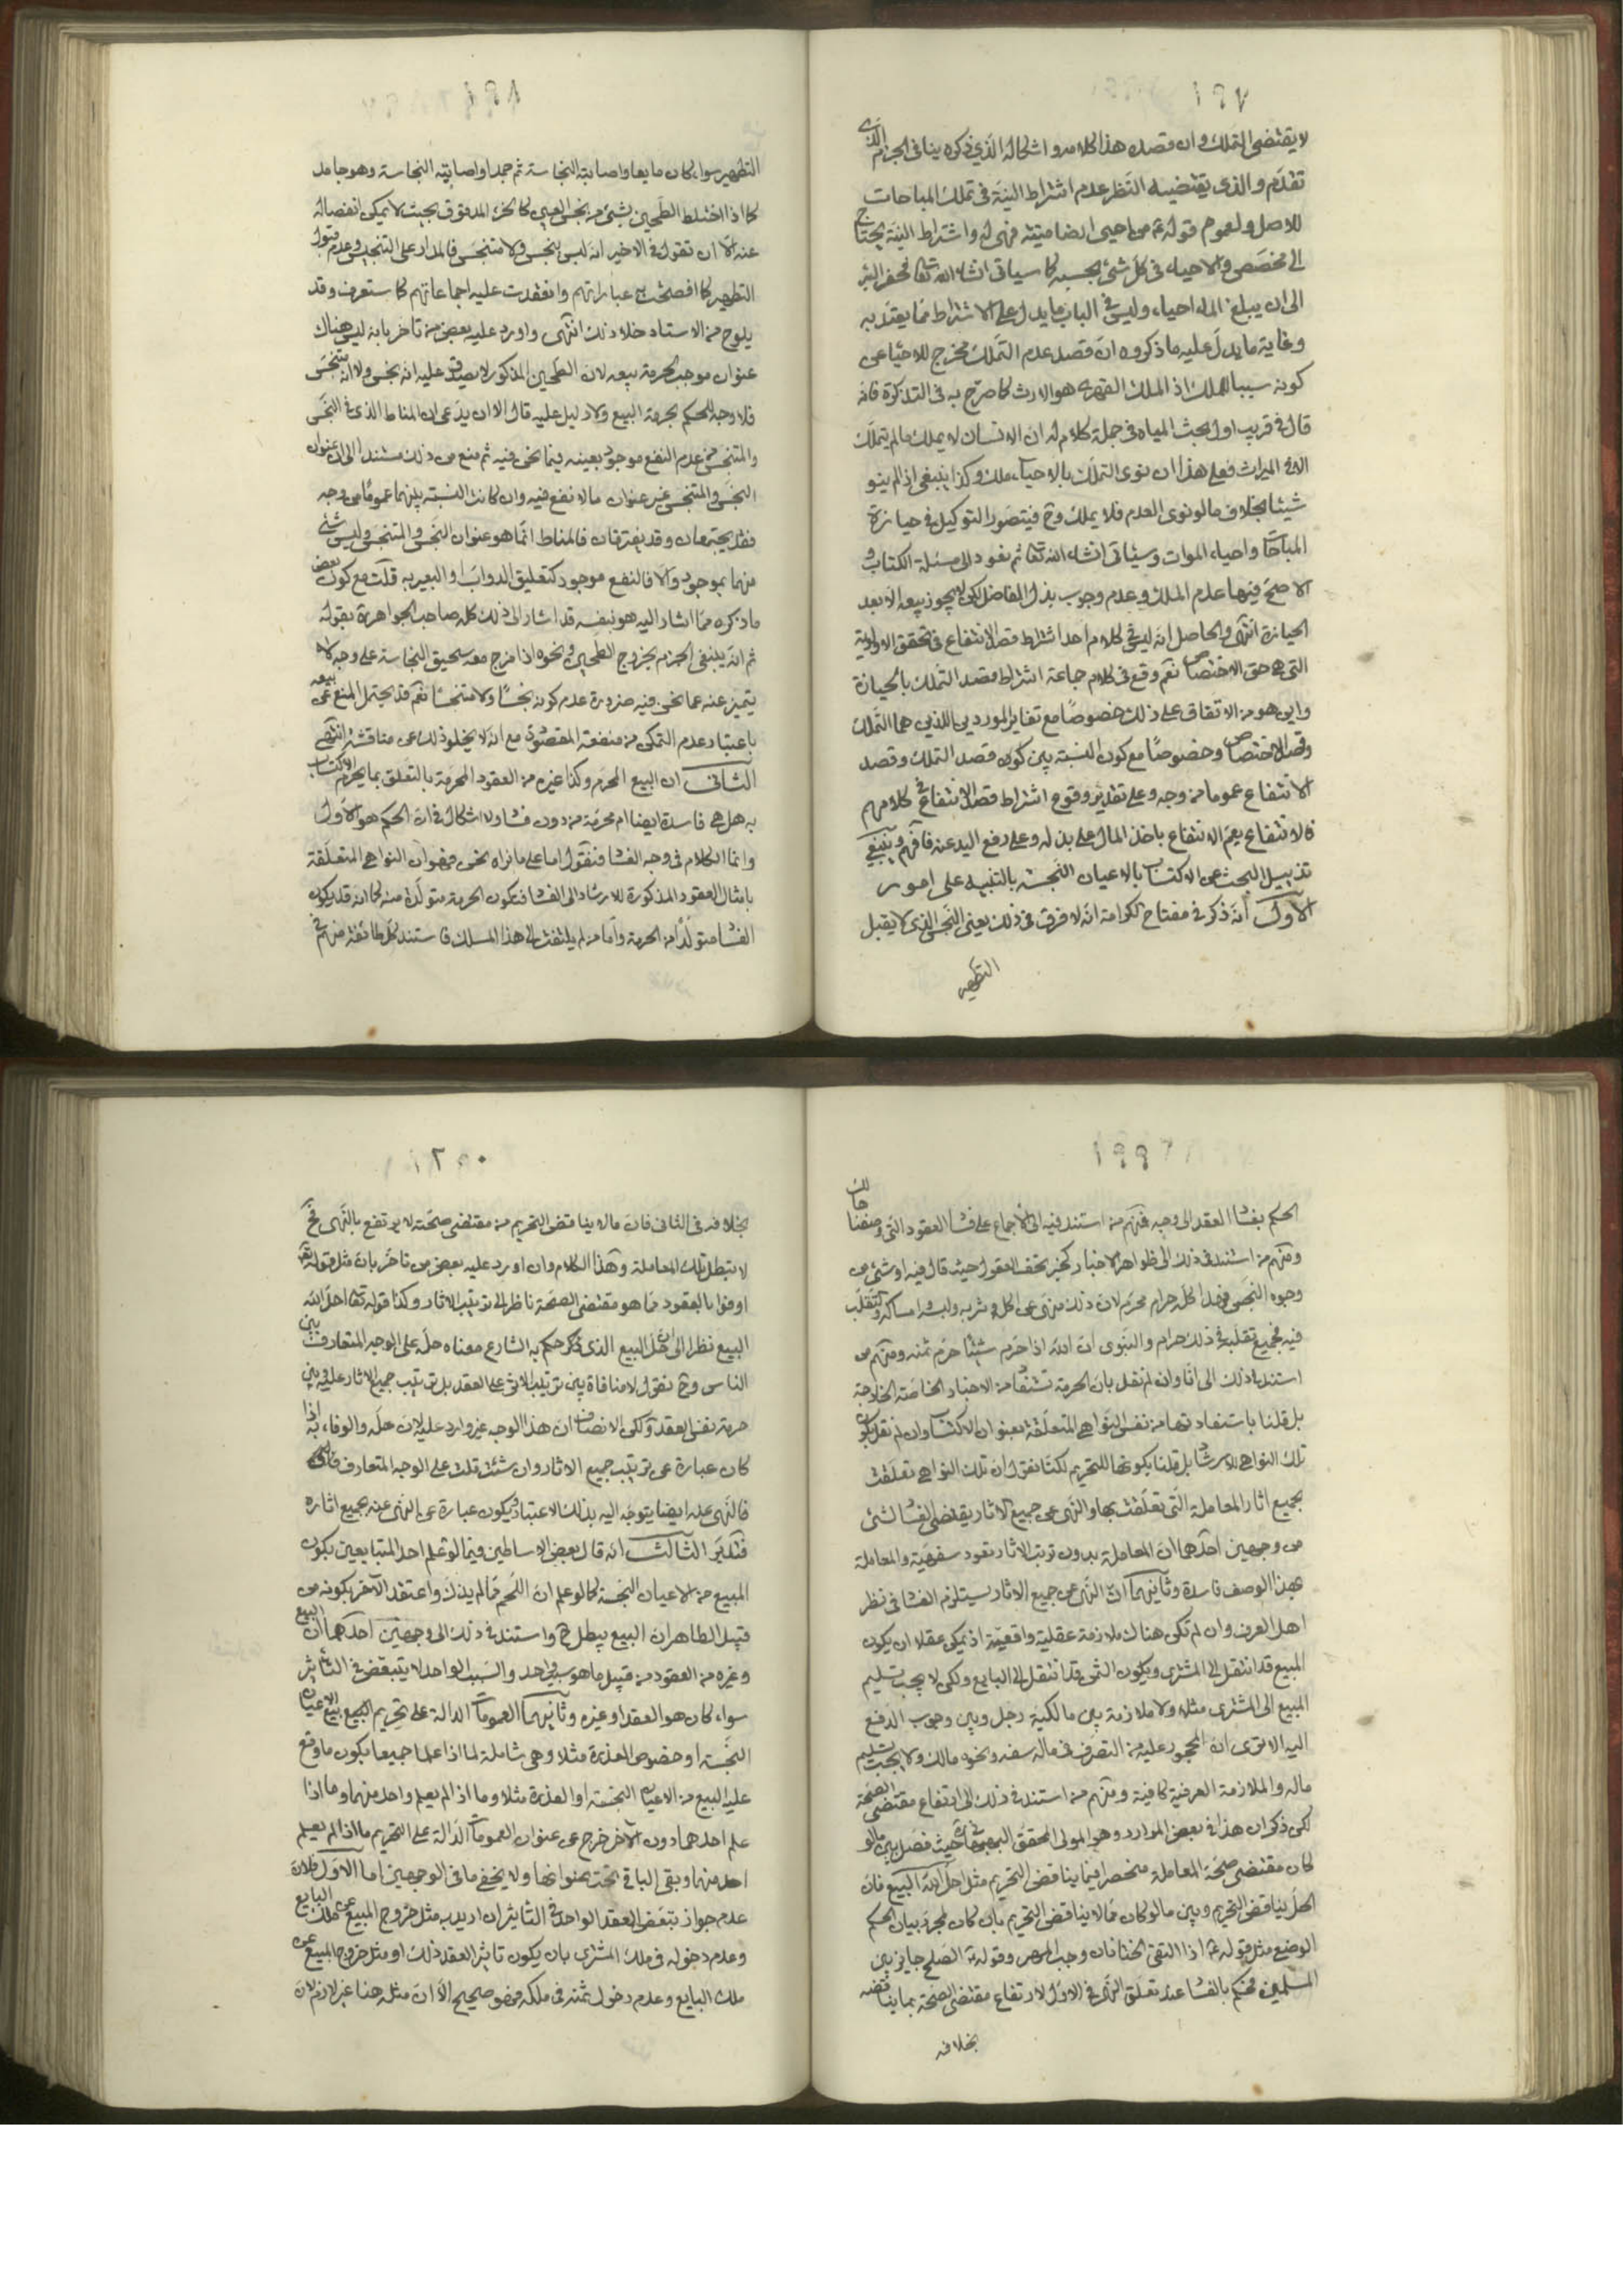 ١٩٧
لا يقتضى التملك وان قصد هذا كلامه واشكاله الذي ذكره ينافى الجزم الذى
تقدم والذى يقتضيه النظر عدم اشتراط النية فى تملك المباحات
للاصل ولعموم قوله ع من احيى ارضا ميتة فهى له واشتراط النية يحتاج
الى مخصص والاحياء فى كل شئ بحسبه كما سياتى انشاء الله تعالى فحفر البئر
الى ان يبلغ الماء احياء وليس فى الباب ما يدل على الاشتراط مما يعتد به
وغاية ما يدل عليه ما ذكروه ان قصد عدم التملك مخرج للاحياء عن
كونه سببا للملك اذ الملك القهرى هو الارث كما صرح به فى التذكرة فانه
قال فى قريب اول بحث المياه فى جملة كلام له ان الانسان لا يملك ما لم يتملك
الا فى الميراث فعلى هذا ان نوى التملك بالاحياء ملك وكذا ينبغى اذا لم ينو
شيئا بخلاف ما لو نوى العدم فلا يملك وح فيتصور التوكيل فى حيازة
المباحات واحياء الموات وسيأتى انشاء الله تعالى ثم نعود الى مسئلة الكتاب و
الاصح فيها عدم الملك وعدم وجوب بذل الفاضل لكن لا يجوز بيعه الا بعد
الحيازة انتهى والحاصل انه ليس فى كلام احد اشتراط قصد الانتفاع فى تحقق الاولوية
التى هى حق الاختصاص نعم وقع فى كلام جماعة اشتراط قصد التملك بالحيازة
واين هو من الاتفاق على ذلك خصوصًا مع تغاير الموردين اللذين هما التملك
وقصد الاختصاص وخصوصًا مع كون النسبة بين كون قصد التملك وقصد
الانتفاع عموما من وجه وعلى تقدير وقوع اشتراط قصد الانتفاع فى كلامهم
فالانتفاع يعم الانتفاع باخذ المال على بذله وعلى رفع اليد عنه فافهم وينبغى
تذييل البحث عن الاكتساب بالاعيان النجسة بالتنبيه على امور
الاول انه ذكر فى مفتاح الكرامة انه لا فرق فى ذلك يعنى النجس الذى لا يقبل
التطهير
١٩٨
التطهير سواء كان مايعا واصابته النجاسة ثم جمد او اصابته النجاسة وهو جامد
كما اذا اختلط الطحين بشئ من نجس العين كالخرء المدقوق بحيث لا يمكن انفصاله
عنه الا ان تقول فى الاخير انه ليس بنجس ولا متنجس فالمدار على التنجيس وعدم قبول
التطهير كما افصحت به عباراتهم وانعقدت عليه اجماعاتهم كما ستعرف وقد
يلوح من الاستاد خلاف ذلك انتهى واورد عليه بعض من تاخر بانه ليس هناك
عنوان موجب لحرمة بيعه لان الطحين المذكور لا يصدق عليه انه نجس ولا انه متنجس
فلا وجه للحكم بحرمة البيع ولا دليل عليه قال الا ان يدعى ان المناط الذى فى النجس
والمتنجس من عدم النفع موجود بعينه فيما نحن فيه ثم منع من ذلك مستندا الى ان عنوان
النجس والمتنجس غير عنوان ما لا نفع فيه وان كانت النسبة بينهما عمومًا من وجه
فقد يجتمعان وقد يفترقان فالمناط انما هو عنوان النجس والمتنجس وليس شئ
منهما بموجود والا فالنفع موجود كتعليق الدواب او البعير به قلت مع كون بعض
ما ذكره مما اشار اليه هو نفسه قد اشار الى ذلك كله صاحب الجواهر ره بقوله
ثم انه ينبغى الجزم بخروج الطحين ونحوه اذا مزج معه سحيق النجاسة على وجه لا
يتميز عنه عما نحن فيه ضرورة عدم كونه نجسًا ولا متنجسًا نعم قد يحتمل المنع عن بيعه
باعتبار عدم التمكن من منفعته المقصودة مع انه لا يخلو ذلك عن مناقشة انتهى
الثانى ان البيع المحرم وكذا غيره من العقود المحرمة بالتعلق بما يحرم الاكتساب
به هل هى فاسدة ايضا ام محرمة من دون فساد لا اشكال فى ان الحكم هو الاول
وانما الكلام فى وجه الفساد فنقول اما على ما نراه نحن فهو ان النواهى المتعلقة
بامثال العقود المذكورة للارشاد الى الفساد فتكون الحرمة متولدة منه كما انه قد يكون
الفساد متولدًا من الحرمة واما من لم يلتفت الى هذا المسلك فاستند كل طائفة منهم فى
١٩٩
الحكم بفساد العقد الى وجه فمنهم من استند فيه الى الاجماع على فساد العقود التى وصفنا حالك
ومنهم من استند فى ذلك الى ظواهر الاخبار كخبر تحف العقول حيث قال فيه او شئ من
وجوه النجس فهذا كله حرام محرم لان ذلك منهى عن اكله وشربه ولبسه وامساكه والتقلب
فيه فجميع تقلبه فى ذلك حرام والنبوى ان الله اذا حرم شيئا حرم ثمنه ومنهم من
استند فى ذلك الى انا وان لم نقل بان الحرمة تستفاد من الاخبار الخاصة الخارجة
بل قلنا باستفادتها من نفس النواهى المتعلقة بعنوان الاكتساب وان لم نقل بكون
تلك النواهى للارشاد بل قلنا بكونها للتحريم لكنا نقول ان تلك النواهى تعلقت
بجميع اثار المعاملة التى تعلقت بها والنهى عن جميع الاثار يقتضى الفساد لشئ
من وجهين احدهما ان المعاملة بدون ترتب الاثار تعود سفهية والمعاملة
بهذا الوصف فاسدة وثانيهما ان النهى عن جميع الاثار يستلزم الفساد فى نظر
اهل العرف وان لم تكن هناك ملازمة عقلية واقعية اذ يمكن عقلا ان يكون
المبيع قد انتقل الى المشترى ويكون الثمن قد انتقل الى البايع ولكن لا يجب تسليم
المبيع الى المشترى مثلا ولا ملازمة بين مالكية رجل وبين وجوب الدفع
اليه الا ترى ان المحجور عليه من التصرف فى ماله لسفه ونحوه مالك ولا يجب تسليم
ماله والملازمة العرفية كافية ومنهم من استند فى ذلك الى ارتفاع مقتضى الصحة
لكن ذكر ان هذا فى بعض الموارد وهو المولى المحقق البهبهانى ره حيث فصل بين ما لو
كان مقتضى صحة المعاملة منحصرا فيما يناقض التحريم مثل احل الله البيع فان
الحل يناقض التحريم وبين ما لو كان مما لا يناقض التحريم بان كان لمجرد بيان الحكم
الوضعى مثل قوله ع اذا التقى الختانان وجب المهر وقوله ع الصلح جايز بين
المسلمين فحكم بالفساد عند تعلق النهى فى الاول لارتفاع مقتضى الصحة بما يناقضه
بخلافه
٢٠٠
بخلافه فى الثانى فان ما لا يناقض التحريم من مقتضى صحته لا يرتفع بالنهى فح
لا تبطل تلك المعاملة وهذا الكلام وان اورد عليه بعض من تاخر بان مثل قوله تعالى
اوفوا بالعقود مما هو مقتضى الصحة ناظر الى ترتيب الاثار وكذا قوله تعالى احل الله
البيع نظرا الى ان حل البيع الذى ذكر حكم به الشارع معناه حله على الوجه المتعارف بين
الناس وح نقول لا منافاة بين ترتيب الاثر على العقد بل ترتيب جميع الاثار عليه وبين
حرمة نفس العقد ولكن الانصاف ان هذا الوجه غير وارد عليه لان حله والوفاء به اذا
كان عبارة عن ترتيب جميع الاثار وان شئت قلت على الوجه المتعارف
فالنهى عنه ايضا يتوجه اليه بذلك الاعتبار فيكون عبارة عن النهى عنه بجميع اثاره
فتدبر الثالث انه قال بعض الاساطين فيما لو علم احد المتبايعين بكون
المبيع من الاعيان النجسة كما لو علم ان اللحم مما لم يذك واعتقد الآخر بكونه من
قبيل الطاهر ان البيع يبطل ح واستند فى ذلك الى وجهين احدهما ان البيع
وغيره من العقود من قبيل ما هو سبب واحد والسبب الواحد لا يتبعض فى التأثير
سواء كان هو العقد او غيره وثانيهما العمومات الدالة على تحريم بيع الاعيان
النجسة او خصوص العذرة مثلا وهى شاملة لما اذا علما جميعا بكون ما وقع
عليه البيع من الاعيان النجسة او العذرة مثلا وما اذا لم يعلم واحد منهما وما اذا
علم احدهما دون الآخر خرج عن عنوان العمومات الدالة على التحريم ما اذا لم يعلم
احد منهما وبقى الباقى تحت عنوانها ولا يخفى ما فى الوجهين اما الاول فلان
عدم جواز تبعض العقد الواحد فى التاثير ان اريد به مثل خروج المبيع عن ملك البايع
وعدم دخوله فى ملك المشترى بان يكون تاثير العقد ذلك او مثل خروج المبيع عن
ملك البايع وعدم دخول ثمنه فى ملكه فهو صحيح الا ان مثله هنا غير لازم لان